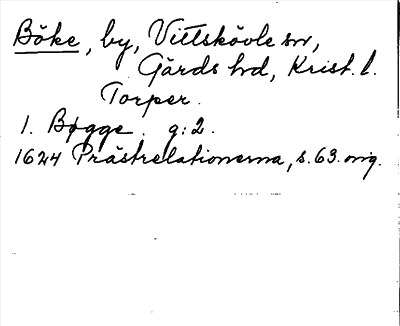 Böke, by, Vittskövle sn,
Gärds hd, Krist. l.
Torper.
1. Bøgge. g:2.
1624 Prästrelationerna, s. 63. orig.